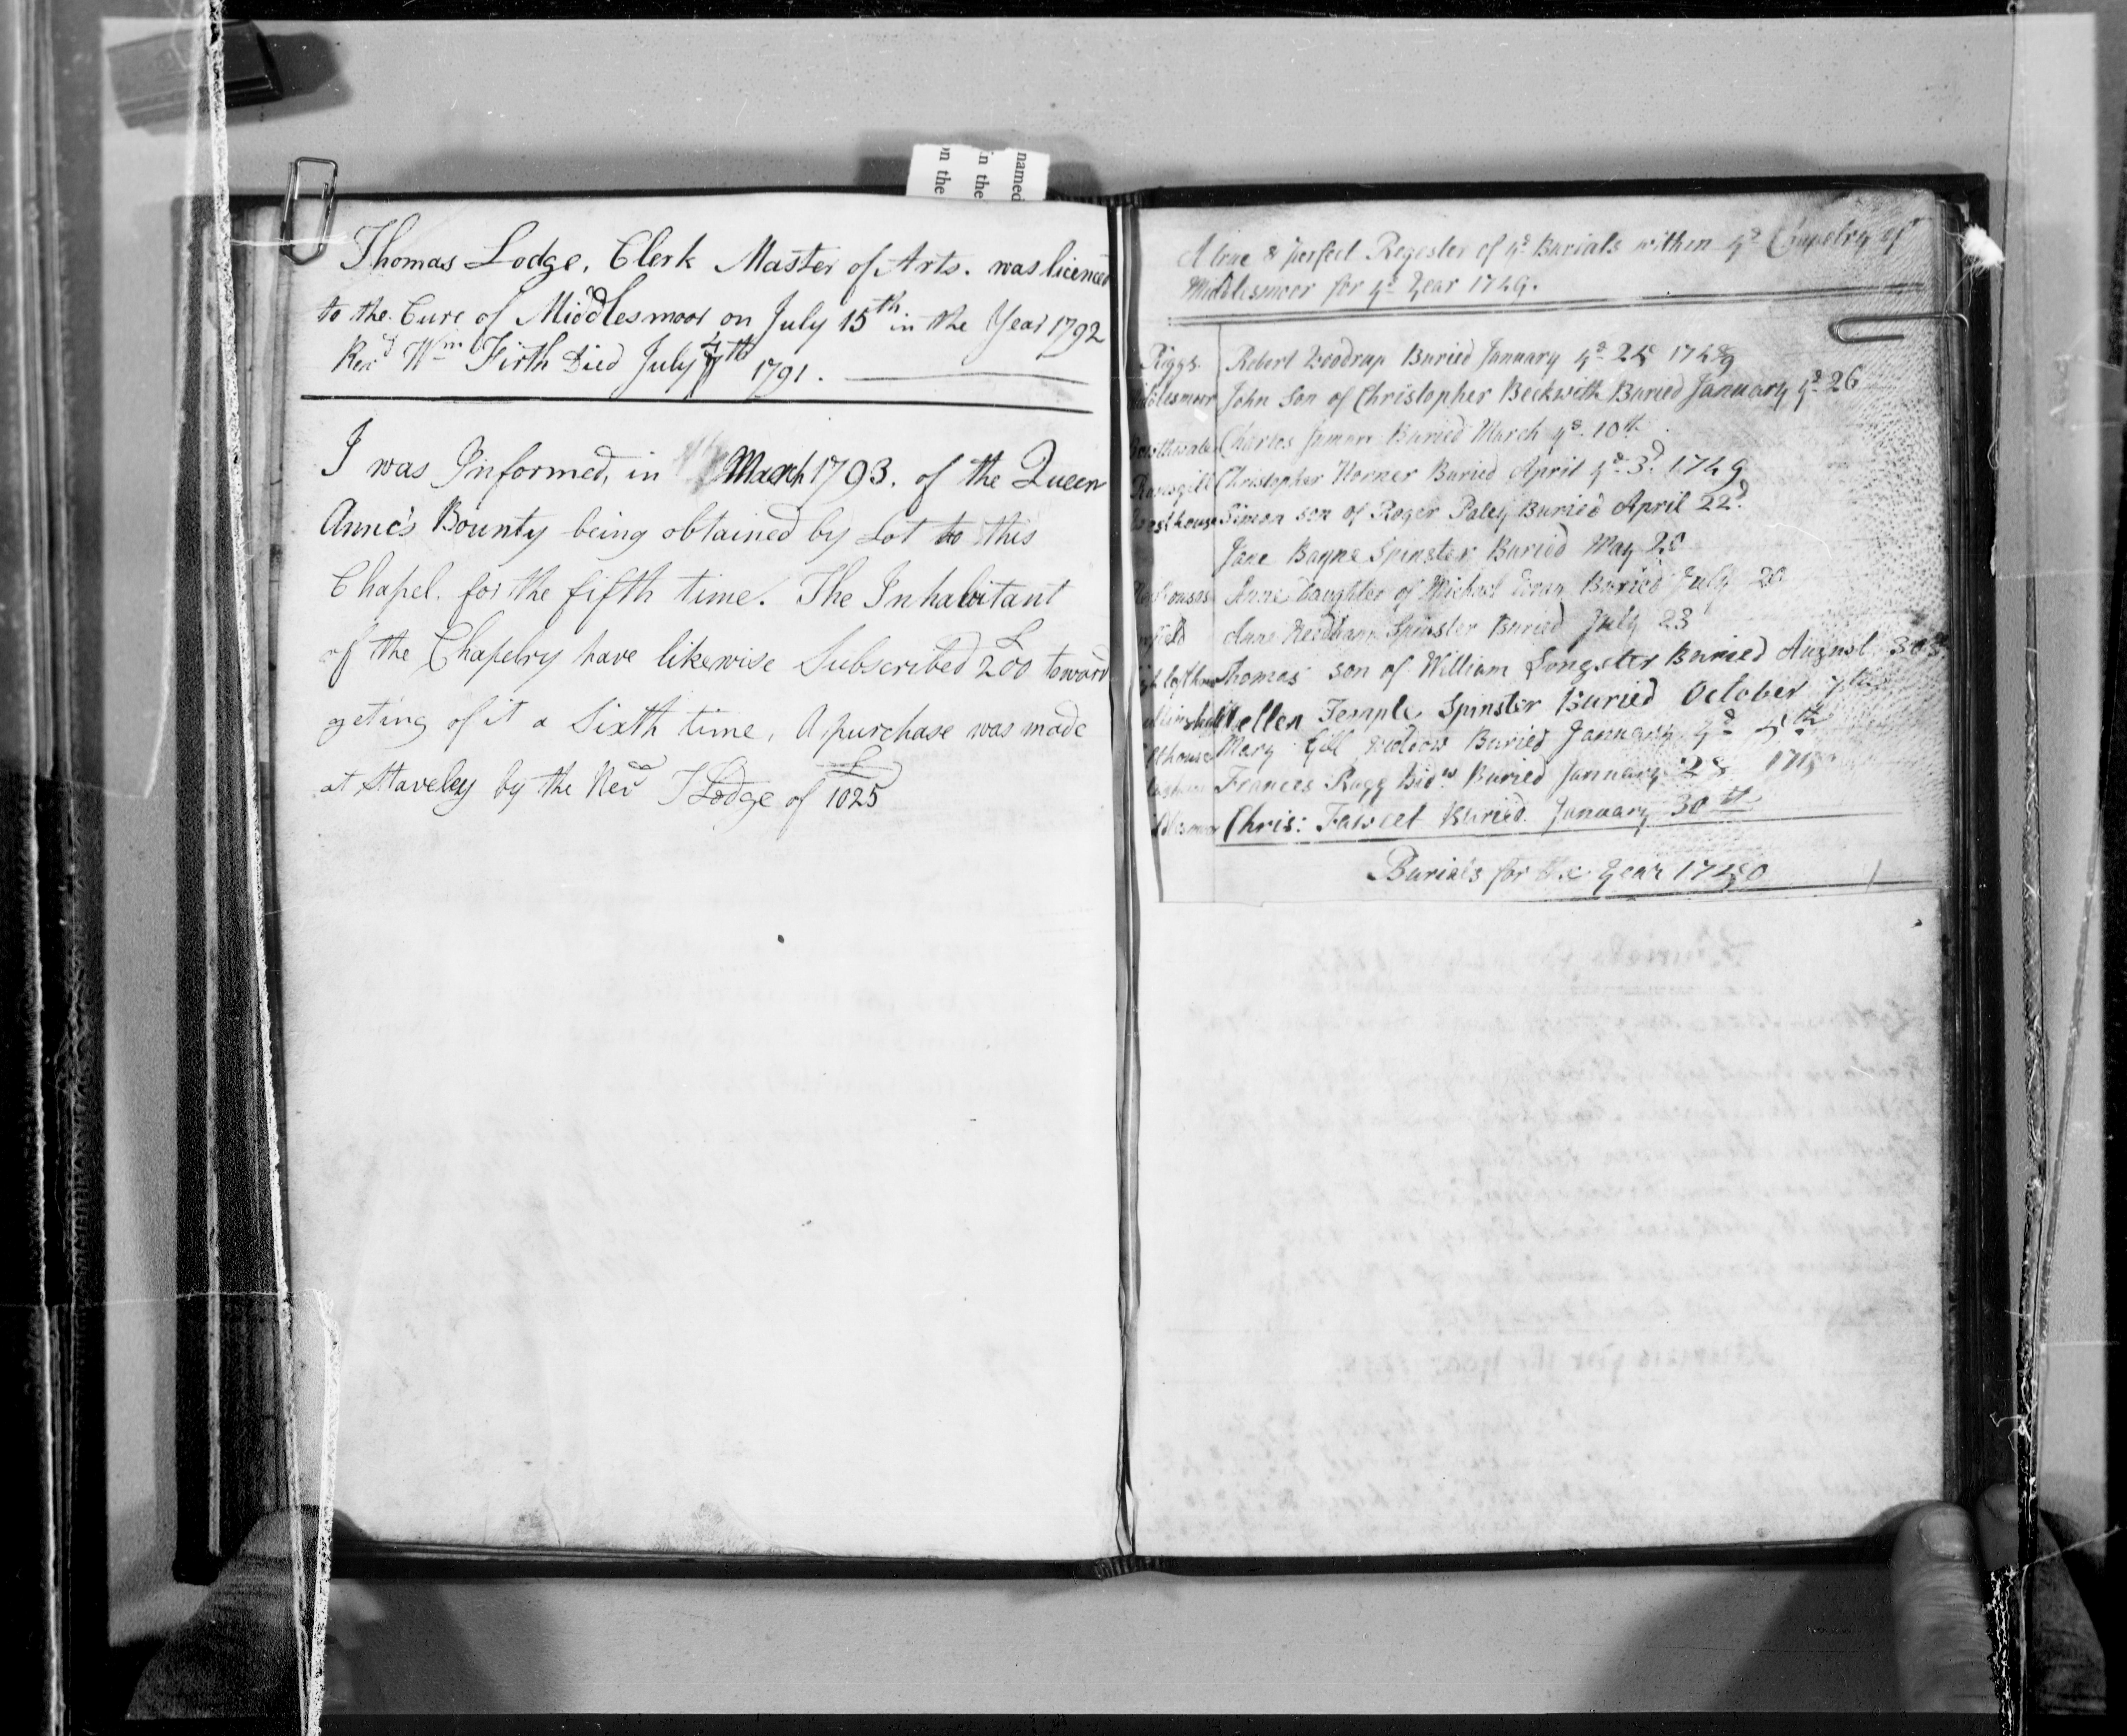 named
in the
on the
Thomas Lodge, Clerk Master of Arts. was licenced
to the Cure of Middlesmoor on July 15th in the Year 1792
Revd Wm Firth Died July 4th 1791.
I was Informed, in March 1793. of the Queen
Anne's Bounty being obtained by Lot to this
Chapel. for the fifth time. The Inhabitant
of the Chapelry have likewise Subscribed £200 toward
geting of it a Sixth time, A purchase was made
at Staveley by the Revd T Lodge of £1025
A true & perfect Regester of ye Burials within ye Chapelry of
Middlesmoor for ye Year 1749.
Riggs Robert Woodrup Buried January ye 25
dlesmoor John Son of Christopher Beckwith Buried January ye 26
Charles Buried March ye 10th
Ramsgill Christopher Horner Buried April ye 3d 1749
Simon son of Roger Paley Buried April 22d
Jane Bayne Spinster Buried May
Anne Daughter of Michael Buried July 20
Ann Needham Spinster Buried July 23
Thomas son of William Songster Buried August 30th
Hellen Temple Spinster Buried October 7th
Mary Gill widow Buried January ye 5th
Frances Ragg Widw Buried January 28
Chris: Fawcet Buried January 30th
Burials for the Year